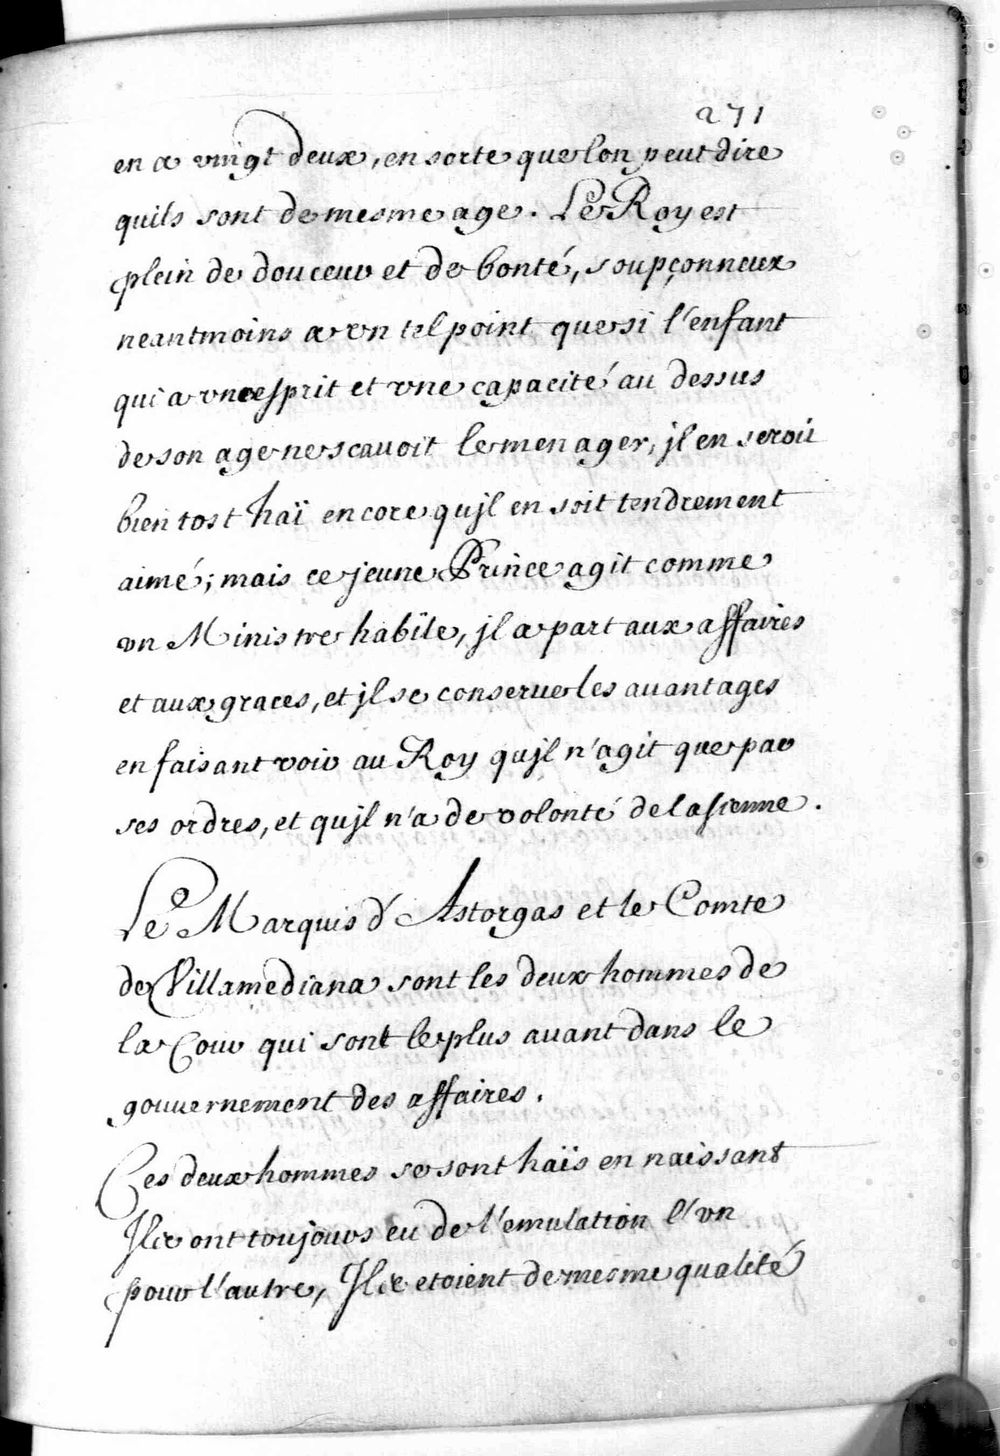 271
en a vingt deux, en sorte que lon peut dire
quils sont de mesme age. Le Roy est
plein de douceur et de bonté, soupçonneux
neantmoins a vn tel point que si l'enfant
qui a vn esprit et vne capacité au dessus
de son age ne scauoit le menager, jl en seroit
bien tost haï encore qujl en soit tendrement
aimé; mais ce jeune Prince agit comme
vn Ministre habile, jl a part aux affaires
et aux graces, et jl se conserue les auantages
en faisant voir au Roy qujl n'agit que par
ses ordres, et qujl n'a de volonté de la sienne.
Le Marquis d'Astorgas et le Comte
de Villamediana sont les deux hommes de
la Cour qui sont le plus auant dans le
gouuernement des affaires.
Ces deux hommes se sont haïs en naissant
Jls ont toujours eu de l'emulation l'vn
pour l'autre, Jls etoient de mesme qualité